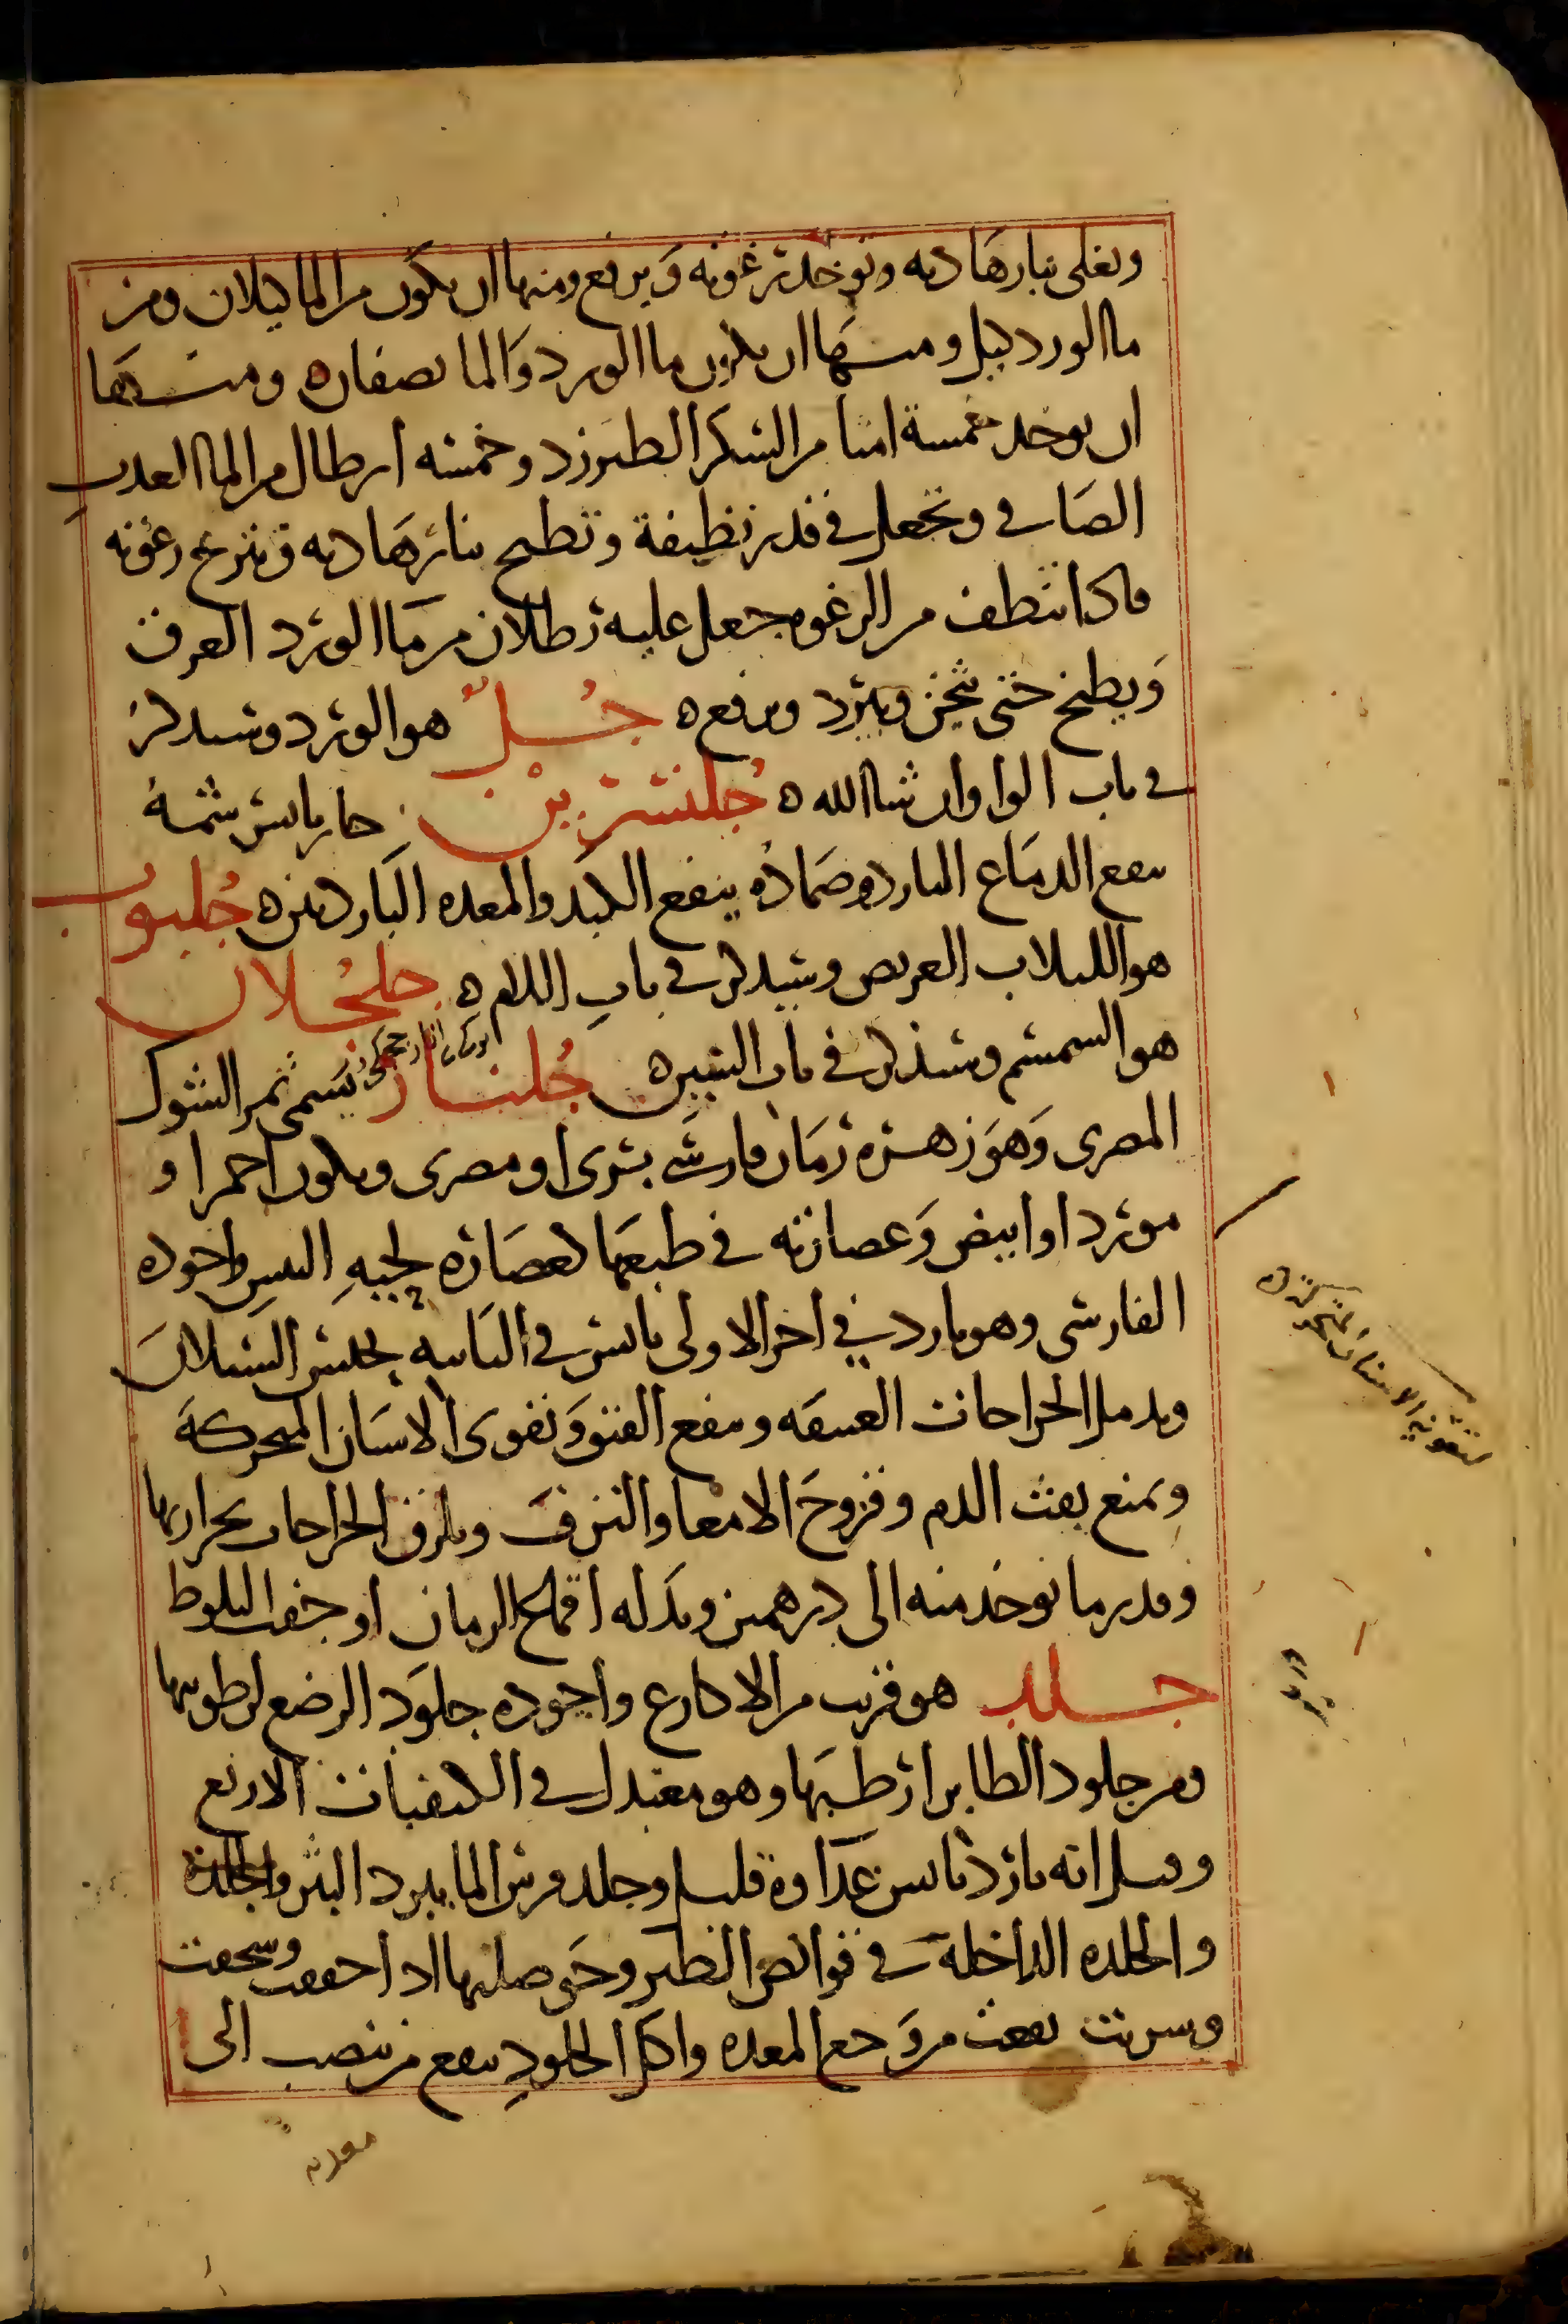 ويغلى بنار هاديه وتوخذ رغوته ويرفع ومنها ان يكون من الما كيلان ومن
ما الورد كيل ومنها ان يكون ما الورد والما نصفان ه ومنها
ان يوخذ خمسة امنا من السكر الطبرزد وخمسه ارطال من الما العذب
الصافي وتجعل في قدر نظيفة وتطبخ بنار هاديه وتنزع رغوته
فاذا انتطف من الرغوه جعل عليه رطلان من ما الورد العرق
ويطبخ حتى يثخن ويبرد ويرفع ه جُلٌ هو الورد وسيذكر
في باب الواو ان شا الله ه جُلنسرين حار يابس شمهُ
ينفع الدماغ البارد وضمادُه ينفع الكبد والمعده الباردتين ه جُلبوب
هو اللبلاب العريض وسيذكر في باب اللام ه جلجُلان
هو السمسم وسيذكر في باب السين ه جُلنار يسمى ثمر الشوك
المصرى وهو زهره رمان فارسي بري او مصرى ويكون احمر او
مورد او ابيض وعصارته في طبعها كعصاره لحيهِ التيس واجوده
الفارسى وهو بارد في اخر الاولى يابس في الثانيه يحبس السيلان
ويدمل الجراحات العتيقه وينفع الفتق ويقوى الاسنان المتحركة
ويمنع نفث الدم وقروح الامعا والنزف ويلزق الجراحات بحرارتها
وقدر ما يوخذ منه الى درهمين وبدله اقماع الرمان او جفت البلوط
جلد هو قريب من الاكارع واجوده جلود الرضع لرطوبتها
ومن جلود الطاير ارطبها وهو معتدل في الكيفيات الاربع
وقيل انه بارد يابس غداوه قليل وجلد فرس الما يبرد البثر والجلدة
والجلده الداخلة في قوانص الطير وحوصلتها اذا جففت وسحقت
وسربت نفعت من وجع المعده واكل الجلود ينفع من ينصب الى
معدته